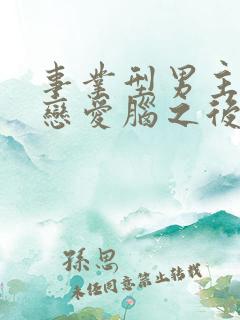 事業型男主
戀愛腦之後
孫思
未經同意禁止轉載